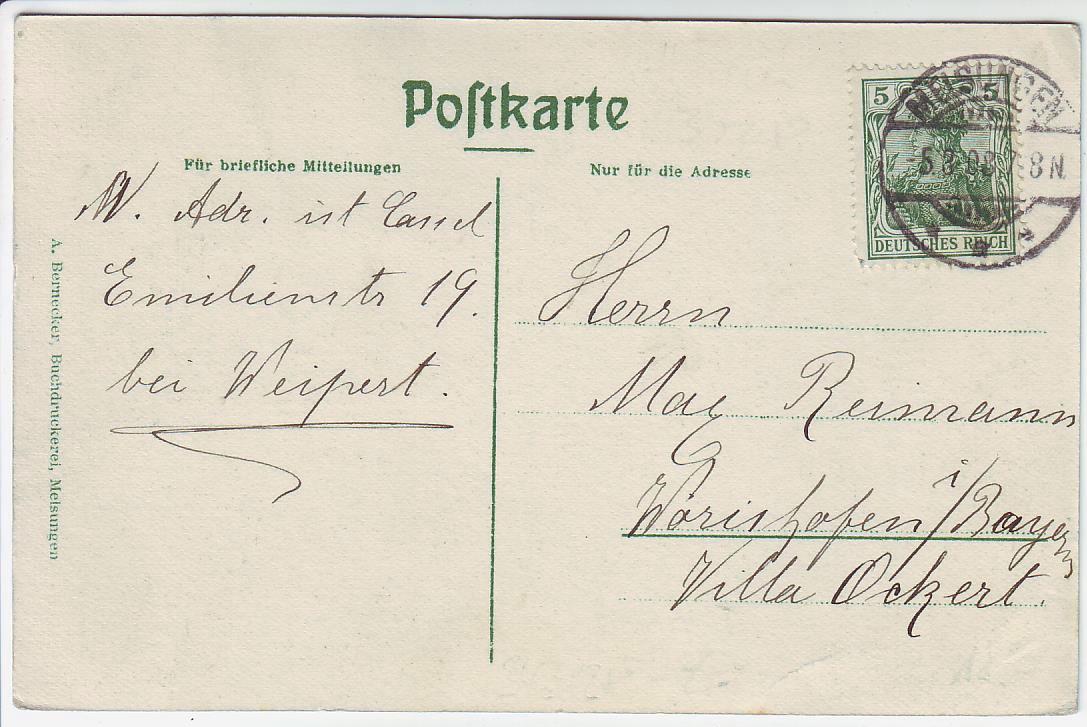 Postkarte
Für briefliche Mitteilungen
Nur für die Adresse
5 5
DEUTSCHES REICH
MELSUNGEN
5 3 08 7-8N
a
M. Adr. ist Cassel
Emilienstr 19.
bei Weipert.
Herrn
Max Reimann
Wörishofen i/Bayern
Villa Ockert.
A. Bernecker, Buchdruckerei, Melsungen